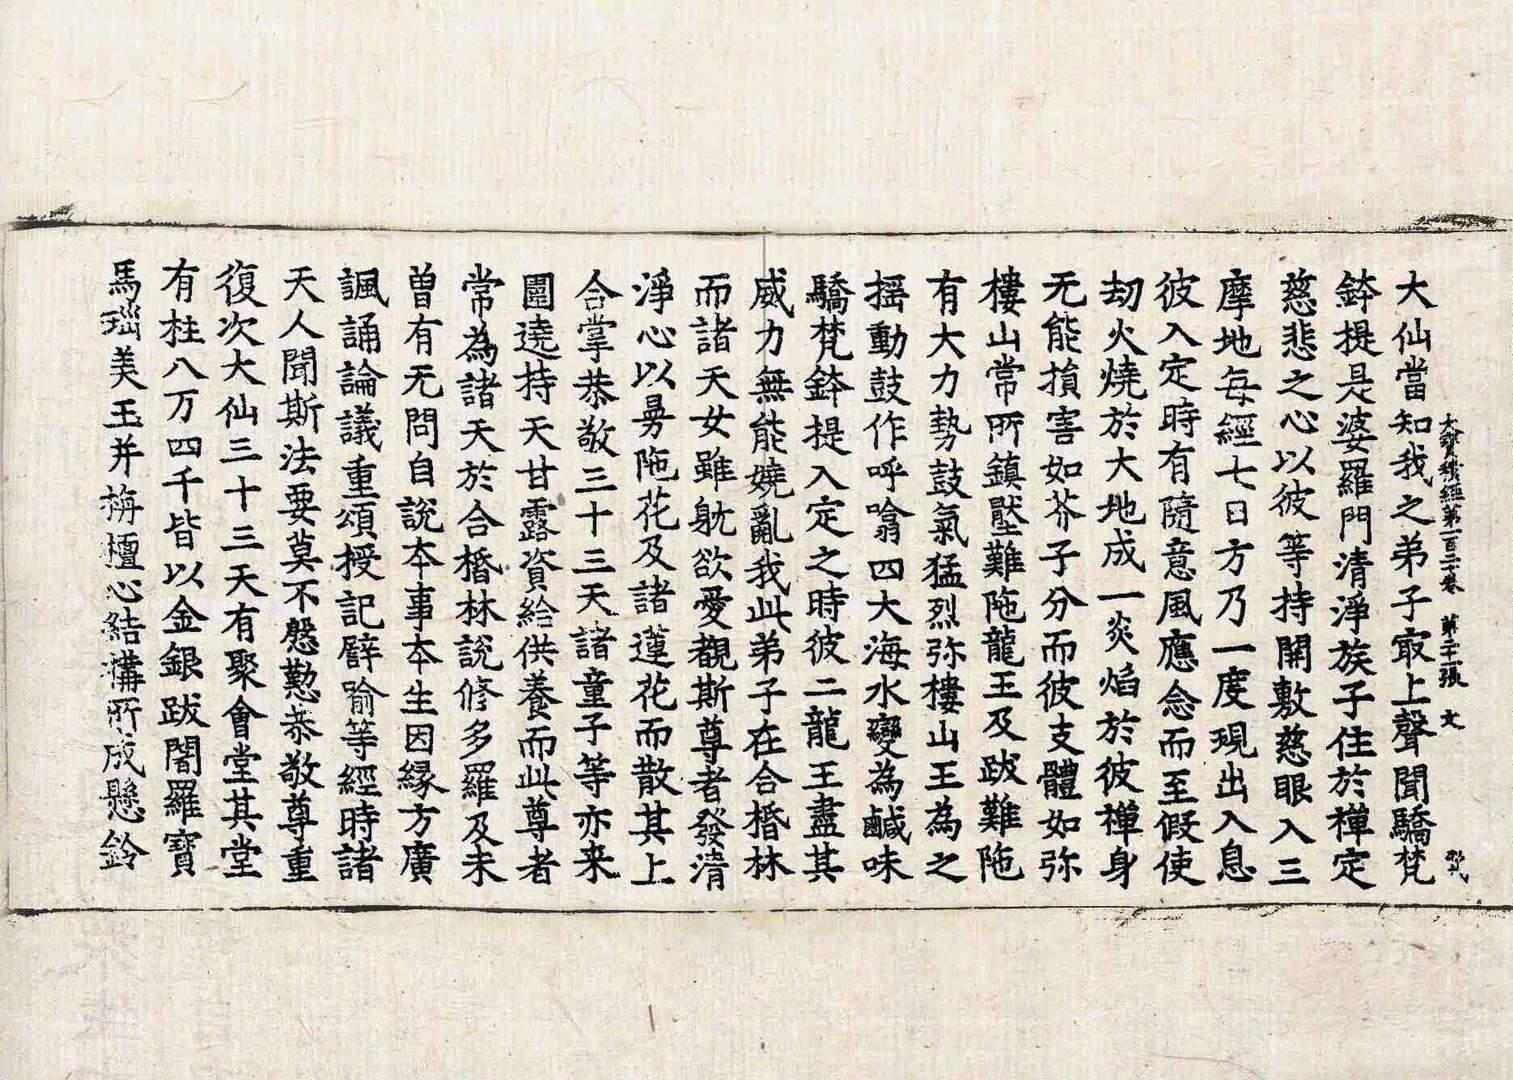 大寶積經第一百二十卷 第二十一張 文
大仙當知我之弟子㝡上聲聞驕梵
鉢提是婆羅門清淨族子住於禪定
慈悲之心以彼等持開敷慈眼入三
摩地每經七日方乃一度現出入息
彼入定時有隨意風應念而至假使
劫火燒於大地成一炎焰於彼禪身
无能損害如芥子分而彼支體如弥
樓山常所鎮壓難陁龍王及跋難陁
有大力勢鼓氣猛烈弥樓山王為之
揺動鼓作呼噏四大海水變為鹹味
驕梵鉢提入定之時彼二龍王盡其
威力無能嬈亂我此弟子在合㮃林
而諸天女雖躭欲愛觀斯尊者發清
淨心以曼陁花及諸蓮花而散其上
合掌恭敬三十三天諸童子等亦来
圍遶持天甘露資給供養而此尊者
常為諸天於合㮃林說修多羅及未
曾有无問自說本事本生因縁方廣
諷誦論議重頌授記譬喻等經時諸
天人聞斯法要莫不慇懃恭敬尊重
復次大仙三十三天有聚會堂其堂
有柱八万四千皆以金銀跋闍羅寶
馬瑙美玉并栴檀心結構所成懸鈴